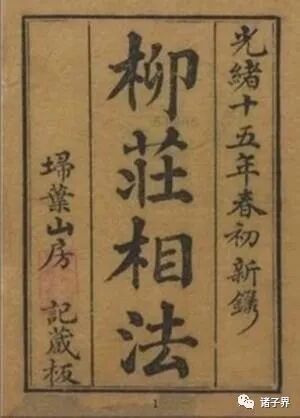 光緒十五年春初新鐫
柳莊相法
埽葉山房 記藏板
1
诸子界